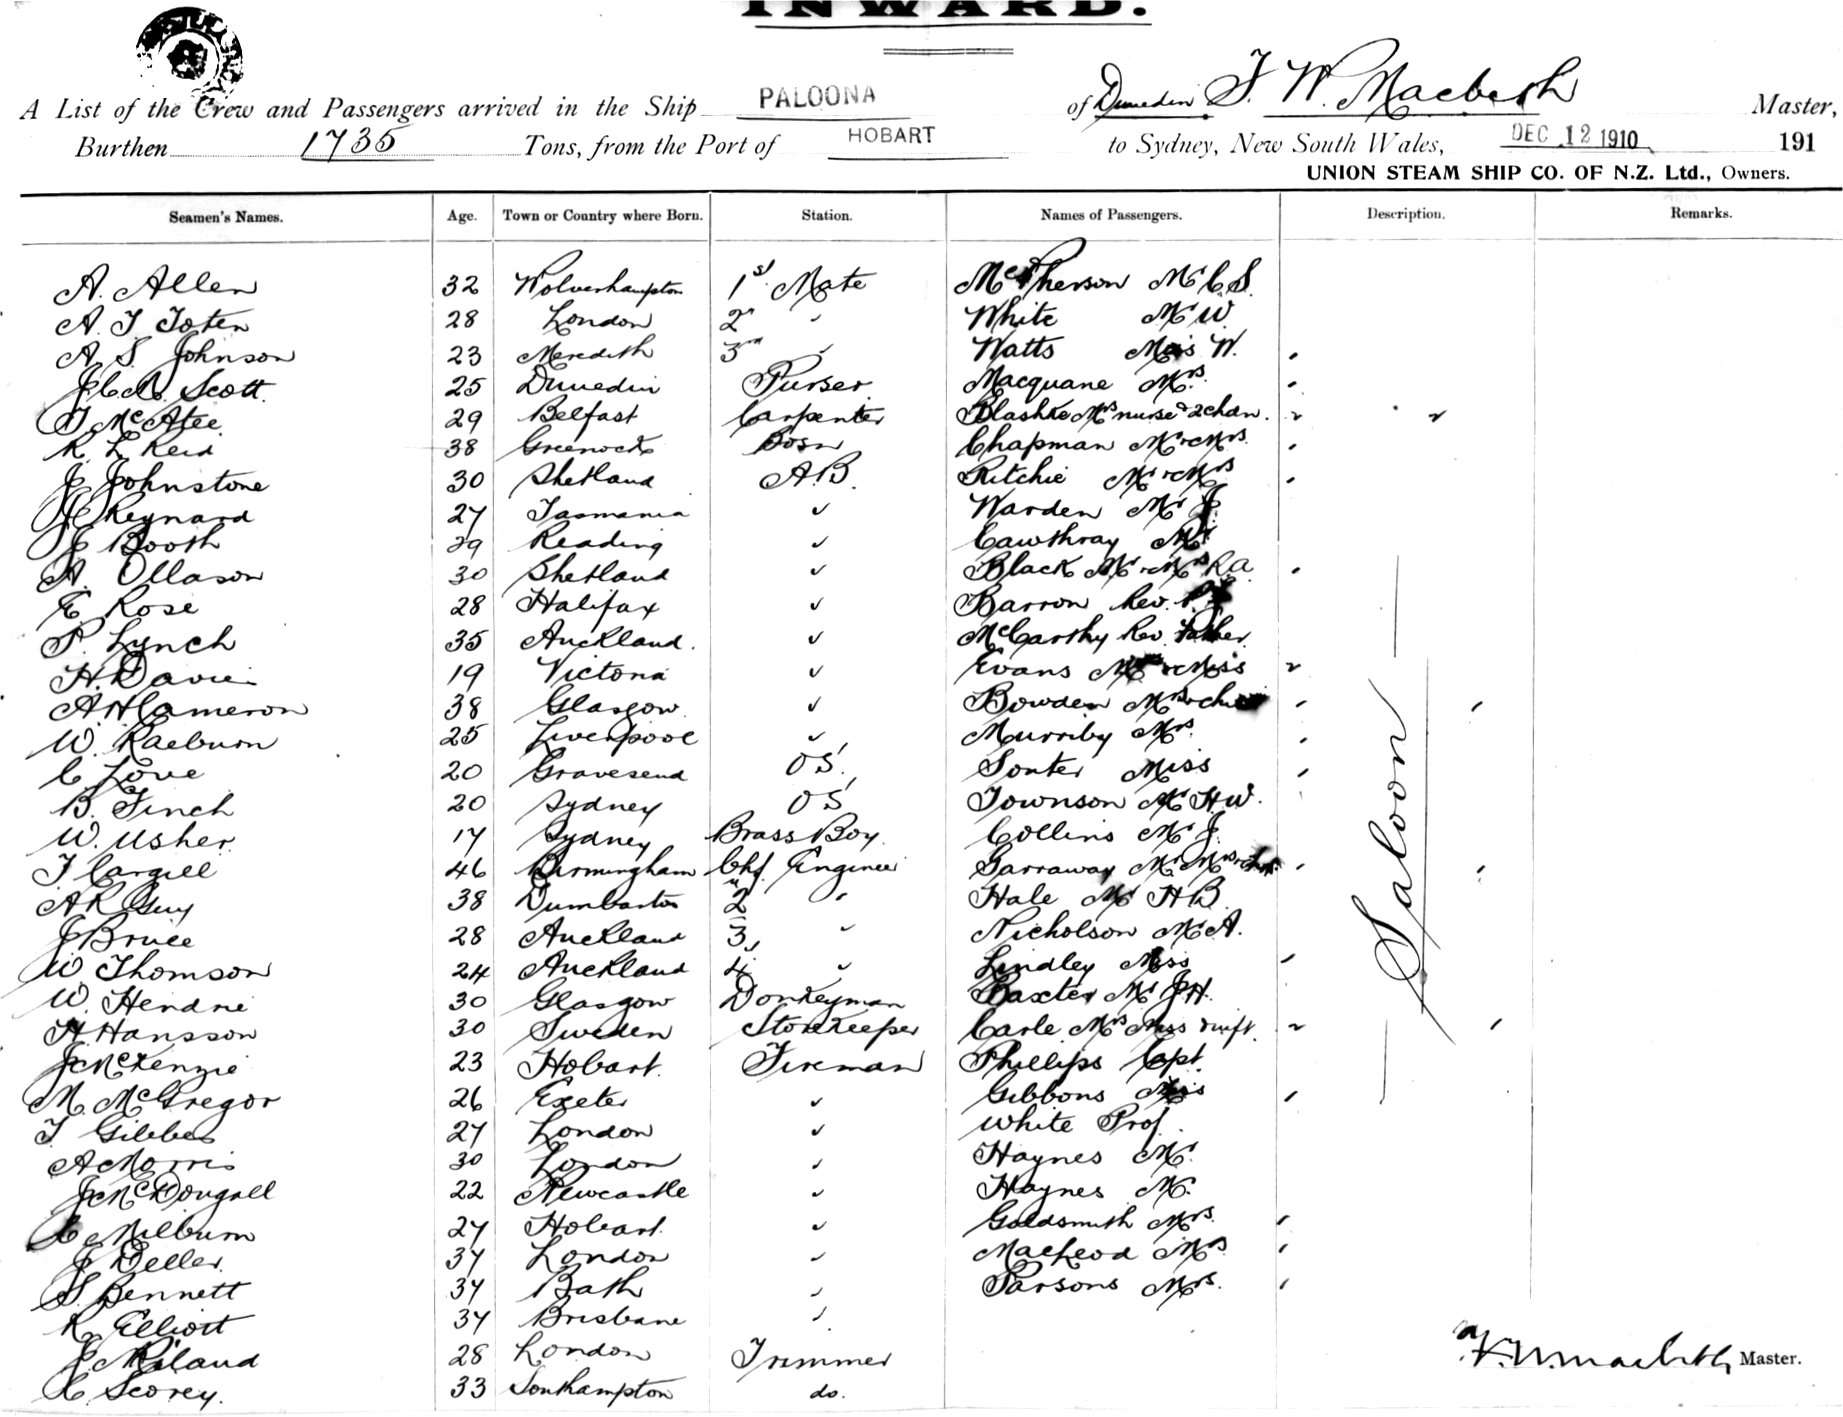 INWARD.
A List of the Crew and Passengers arrived in the Ship PALOONA of Dunedin F. W. Macbeth Master,
Burthen 1735 Tons, from the Port of HOBART to Sydney, New South Wales, DEC 12 1910 191
UNION STEAM SHIP CO. OF N.Z. Ltd., Owners.
Seamen's Names. Age. Town or Country where Born. Station. Names of Passengers. Description. Remarks.
A. Allen 32 Wolverhampton 1st Mate McPherson Mr C S.
A. T Toten 28 London 2nd " White Mr W.
A. S. Johnson 23 Meredith 3rd " Watts Miss W.
Scott. 25 Dunedin Purser. Macquane Mrs.
T McAtee 29 Belfast Carpenter Blashke Mrs nurse & 2 chdn.
R L Reid 38 Greenock Bosn Chapman Mr & Mrs.
J Johnstone 30 Shetland A.B. Ritchie Mr & Mrs
Reynard 27 Tasmania " Warden Mr J.
J Booth 29 Reading " Cawthray Mr
A. Ollason 30 Shetland " Black Mr & Mrs R.A.
E Rose 28 Halifax " Barron Rev.
P. Lynch 35 Auckland. " McCarthy Rev. Father
H. Davie 19 Victoria " Evans Miss
A H Cameron 38 Glasgow. " Bowden Mrs &
W. Raeburn 25 Liverpool " Murriby Mrs.
C Love 20 Gravesend O.S. Souter Miss
B. Finch 20 Sydney O.S. Townson Mr H.W.
W. Usher. 17 Sydney Brass Boy. Collins Mr J.
T Cargill 46 Birmingham Chf. Engineer Garraway Mr Mrs &
A R Guy 38 Dumbarton 2 " Hale Mr H B.
J Bruce 28 Auckland 3 " Nicholson Mr A.
W Thomson 24 Auckland 4 " Lindley Miss
W. Hendrie 30 Glasgow Donkeyman Baxter Mr J H.
H. Hansson 30 Sweden Storekeeper Carle Mrs Miss & inft.
J McKenzie 23 Hobart. Fireman Phillips Capt.
M. McGregor 26 Exeter " Gibbons Miss
T Gibbes 27 London " White Prof.
A Morris 30 London " Haynes Mr.
J McDougall 22 Newcastle " Haynes Mr.
C Milburn 27 Hobart. " Goldsmith Mrs.
J Deller. 37 London " MacLeod Mrs
S. Bennett 37 Bath " Parsons Mrs.
R. Elliott 37 Brisbane "
J 28 London Trimmer
C. Scorey. 33 Southampton do.
Saloon
F. W. Macbeth, Master.